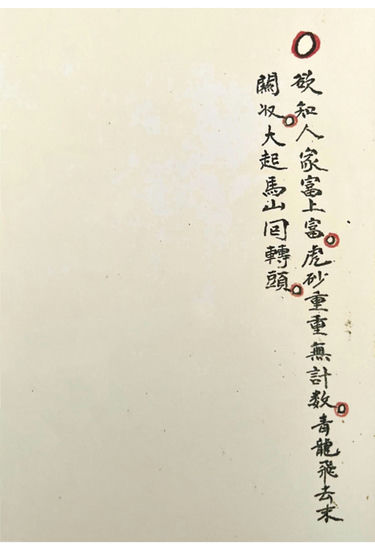 欲知人家富上富虎砂重重無計数青龍飛去末
關收大起馬山囘轉頭